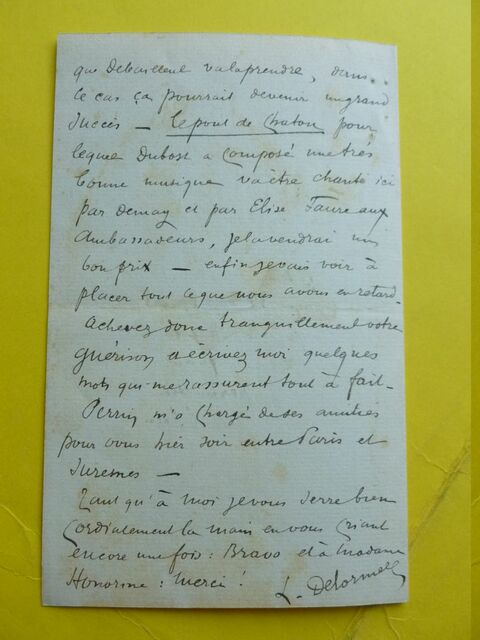 que Debailleul va l'apprendre, dans
le cas ça pourrait devenir un grand
succès — Le pont de Chatou pour
lequel Dubost a composé une très
bonne musique va être chanté ici
par Demay et par Elise Faure aux
Ambassadeurs, je la vendrai un
bon prix — enfin je vais voir à
placer tout ce que nous avons en retard.
Achevez donc tranquillement votre
guérison, écrivez moi quelques
mots qui me rassurent tout à fait —
Perrin m'a chargé de ses amitiés
pour vous hier soir entre Paris et
Suresnes —
Tant qu'à moi je vous serre bien
cordialement la main en vous criant
encore une fois : Bravo et à Madame
Honorine : Merci !
L. Delormel